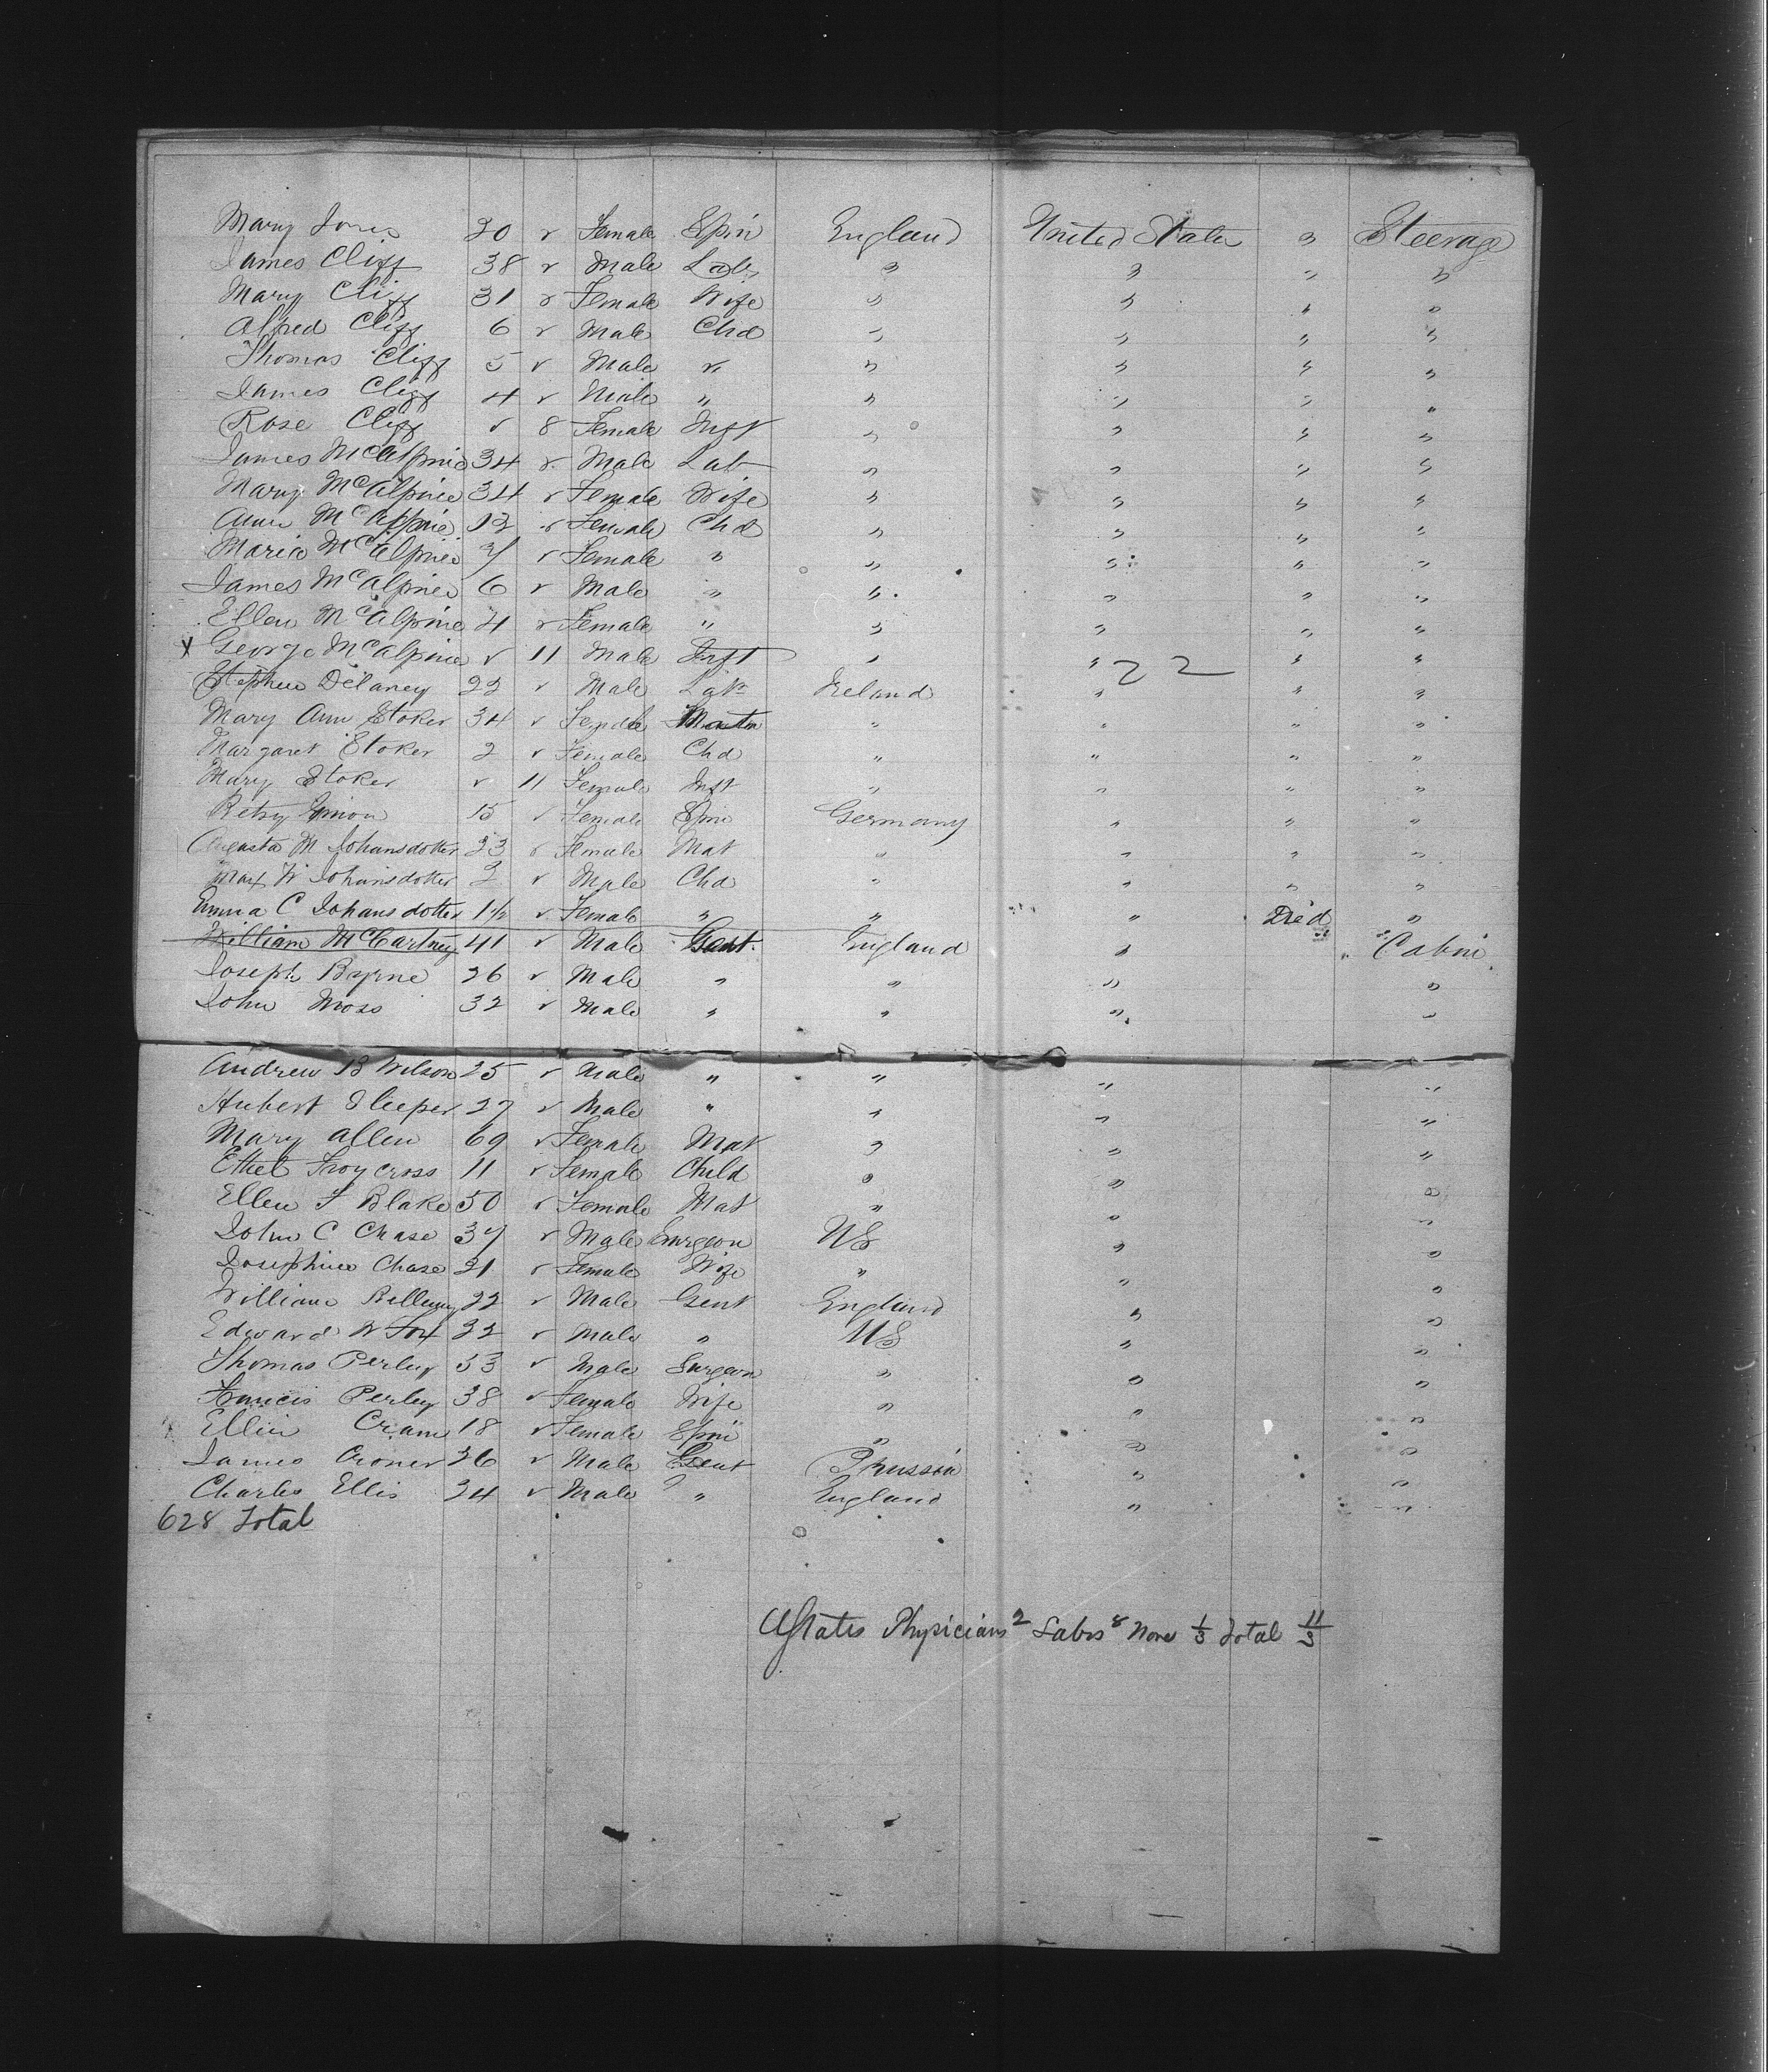 Mary Jones 20 " Female Spin England United States " Steerage
James Cliff 38 " Male Lab " " " "
Mary Cliff 31 " Female Wife " " " "
Alfred Cliff 6 " Male Chd " " " "
Thomas Cliff 5 " Male " " " " "
James Cliff 4 " Male " " " " "
Rose Cliff " 8 Female Inft " " " "
James McAlpine 34 " Male Lab " " " "
Mary McAlpine 34 " Female Wife " " " "
Ann McAlpine 12 " Female Chd " " " "
Maria McAlpine 7 " Female " " " " "
James McAlpine 6 " Male " " " " "
Ellen McAlpine 4 " Female " " " " "
X George McAlpine " 11 Male Inft " " " "
22
Stephen Delaney 22 " Male Lab Ireland " " "
Mary Ann Stoker 34 " Female Matn " " " "
Margaret Stoker 2 " Female Chd " " " "
Mary Stoker " 11 Female Inft " " " "
Betsy Simon 15 " Female Spin Germany " " "
Augusta M Johansdotter 23 " Female Mat " " " "
Max W Johansdotter 3 " Male Chd " " " "
Emma C Johansdotter 1½ " Female " " " Died "
William McCartney 41 " Male Gent England " " Cabin
Joseph Byrne 26 " Male " " " "
John Moss 32 " Male " " " "
Andrew B Wilson 25 " Male " " " "
Hubert Sleeper 27 " Male " " " "
Mary Allen 69 " Female Mat " " "
Ethel Troycross 11 " Female Child " " "
Ellen F Blake 50 " Female Mat " " "
John C Chase 37 " Male Surgeon US " "
Josephine Chase 31 " Female Wife " " "
William Bellamy 22 " Male Gent England " "
Edward W Fox 32 " Male " US " "
Thomas Perley 53 " Male Surgeon " " "
Francis Perley 38 " Female Wife " " "
Ellin Cram 18 " Female Spin " " "
James Croner 36 " Male Gent Prussia " "
Charles Ellis 34 " Male " England " "
628 Total
UStates Physicians 2 Labs 8 None 1/3 Total 11/3